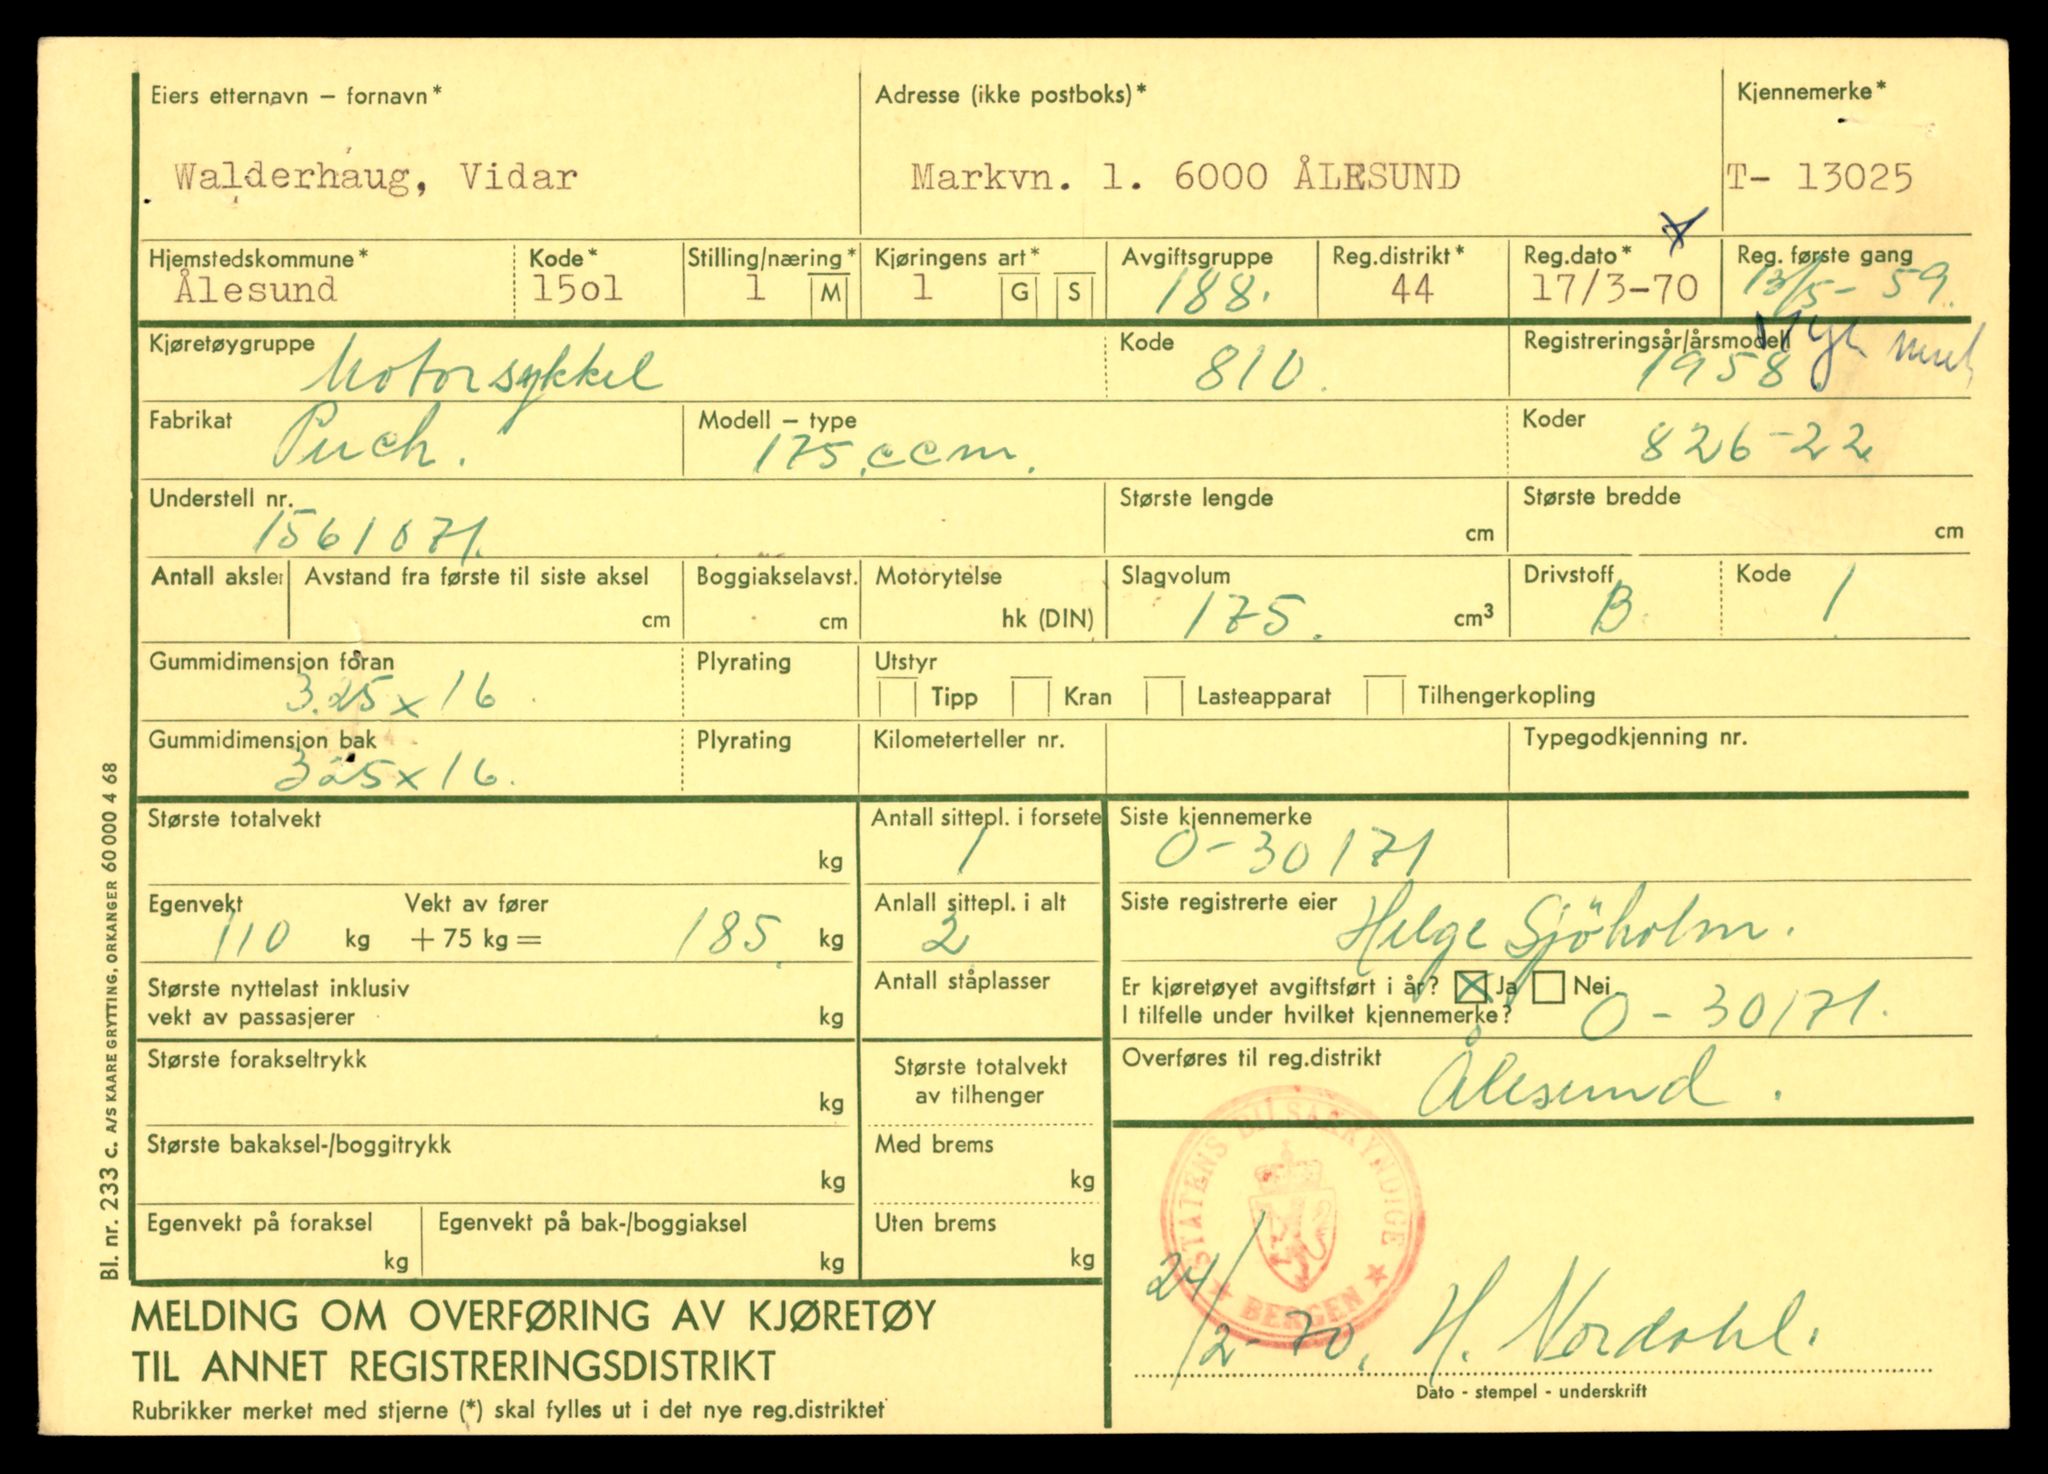 Eiers etternavn – fornavn* Adresse (ikke postboks)* Kjennemerke*
Walderhaug, Vidar Markvn. 1. 6000 ÅLESUND T- 13025
Hjemstedskommune* Kode* Stilling/næring* Kjøringens art* Avgiftsgruppe Reg.distrikt* Reg.dato* Reg. første gang
Ålesund 15o1 1 M 1 G S 188. 44 17/3-70 13/5- 59.
Kjøretøygruppe Kode Registreringsår/årsmodell
Motorsykkel 810. 1958
Fabrikat Modell – type Koder
Puch. 175.ccm. 826-22
Understell nr. Største lengde Største bredde
1561071. cm cm
Antall aksler Avstand fra første til siste aksel Boggiakselavst. Motorytelse Slagvolum Drivstoff Kode
cm cm hk (DIN) 175. cm3 B. 1
Gummidimensjon foran Plyrating Utstyr
3.25 x 16. Tipp Kran Lasteapparat Tilhengerkopling
Gummidimensjon bak Plyrating Kilometerteller nr. Typegodkjenning nr.
325 x 16.
Største totalvekt Antall sittepl. i forsete Siste kjennemerke
kg 1 O-30171
Egenvekt Vekt av fører Anlall sittepl. i alt Siste registrerte eier
110 kg + 75 kg = 185. kg 2 Helge Sjöholm.
Største nyttelast inklusiv Antall ståplasser Er kjøretøyet avgiftsført i år? Ja Nei
vekt av passasjerer kg I tilfelle under hvilket kjennemerke? O - 30171.
Største forakseltrykk Største totalvekt Overføres til reg.distrikt
kg av tilhenger Ålesund.
Største bakaksel-/boggitrykk Med brems
kg kg
Egenvekt på foraksel Egenvekt på bak-/boggiaksel Uten brems
kg kg kg
STATENS BILSAKKYNDIGE
BERGEN
24/2-70. H. Nordahl.
Dato - stempel - underskrift
MELDING OM OVERFØRING AV KJØRETØY
TIL ANNET REGISTRERINGSDISTRIKT
Rubrikker merket med stjerne (*) skal fylles ut i det nye reg.distriktet
Bl. nr. 233 c. A/S KAARE GRYTTING, ORKANGER 60 000 4 68